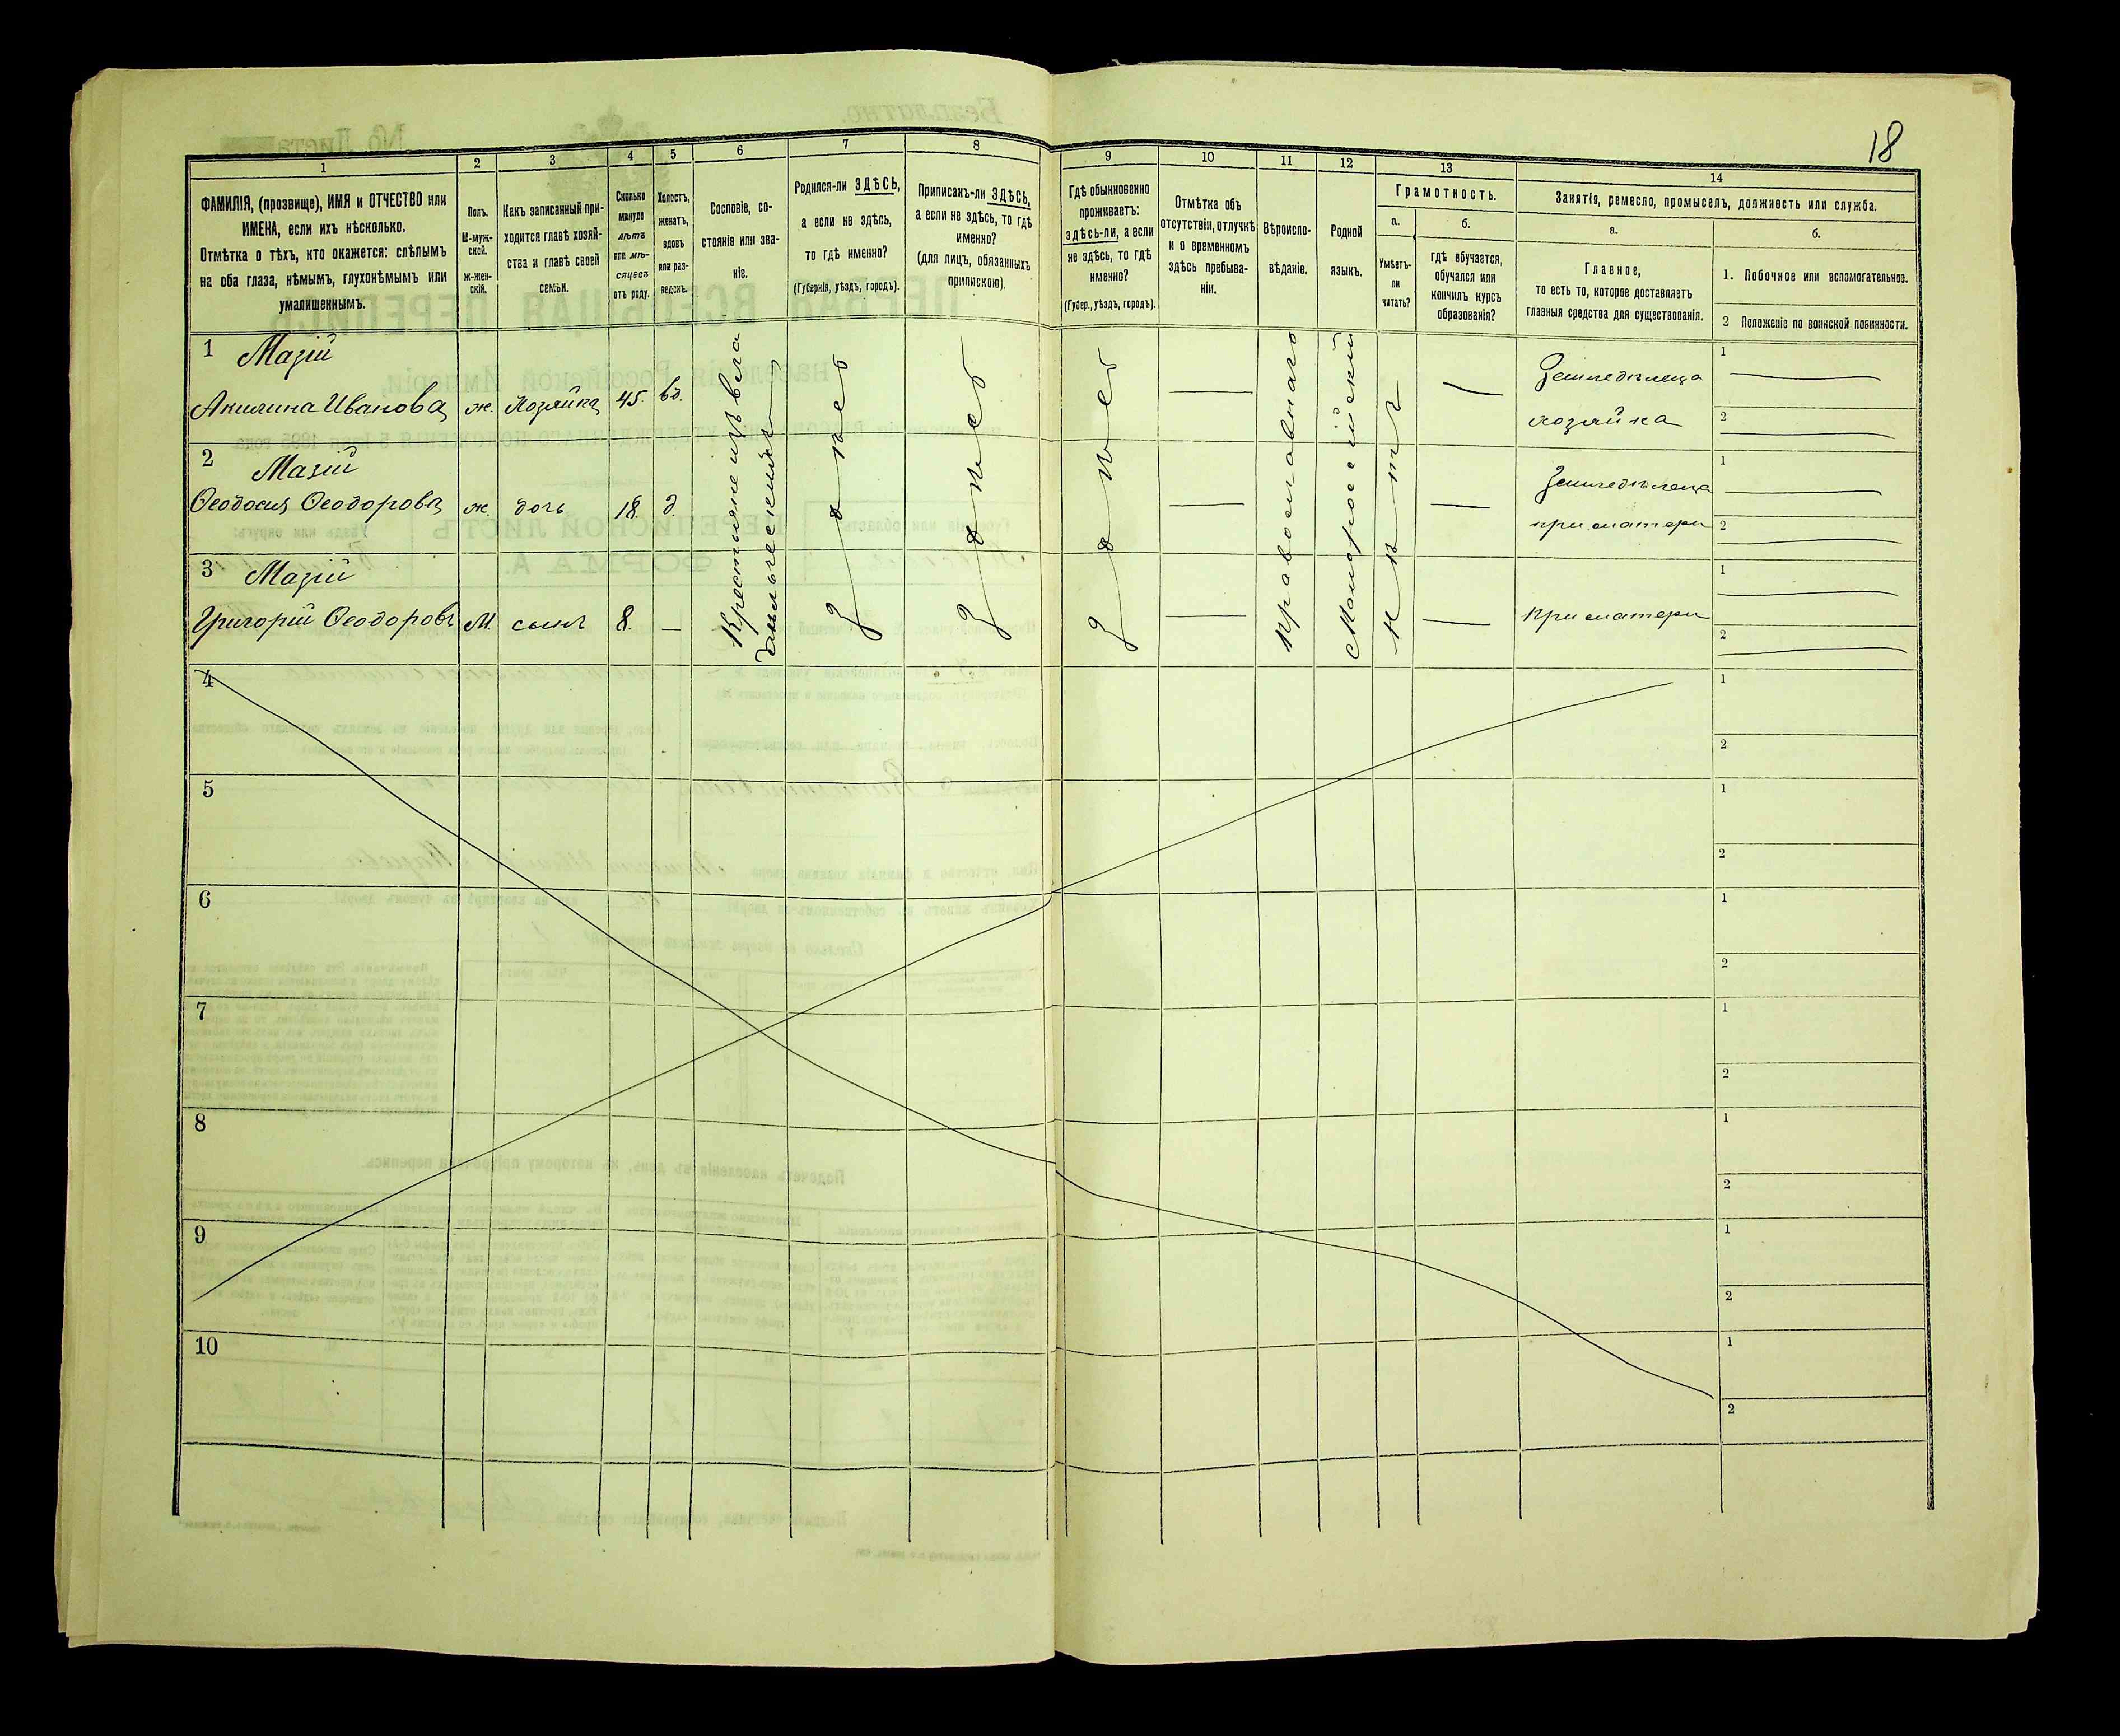 18
1
2
3
4
5
6
7
8
9
10
11
12
13
14
ФАМИЛІЯ, (прозвище), ИМЯ и ОТЧЕСТВО или
ИМЕНА, если ихъ нѣсколько.
Отмѣтка о тѣхъ, кто окажется: слѣпымъ
на оба глаза, нѣмымъ, глухонѣмымъ или
умалишеннымъ.
Полъ.
М-муж-
ской.
ж-жен-
скій.
Какъ записанный при-
ходится главѣ хозяй-
ства и главѣ своей
семьи.
Сколько
минуло
лѣтъ
или мѣ-
сяцевъ
отъ роду.
Холостъ,
женатъ,
вдовъ
или раз-
веденъ.
Сословіе, со-
стояніе или зва-
ніе.
Родился-ли ЗДѢСЬ,
а если не здѣсь,
то гдѣ именно?
(Губернія, уѣздъ, городъ).
Приписанъ-ли ЗДѢСЬ,
а если не здѣсь, то гдѣ
именно?
(для лицъ, обязанныхъ
припискою).
Гдѣ обыкновенно
проживаетъ:
здѣсь-ли, а если
не здѣсь, то гдѣ
именно?
(Губер., уѣздъ, городъ).
Отмѣтка объ
отсутствіи, отлучкѣ
и о временномъ
здѣсь пребыва-
ніи.
Вѣроиспо-
вѣданіе.
Родной
языкъ.
Грамотность.
а.
Умѣетъ-
ли
читать?
б.
гдѣ обучается,
обучался или
кончилъ курсъ
образованія?
Занятіе, ремесло, промыселъ, должность или служба.
а.
Главное,
то есть то, которое доставляетъ
главныя средства для существованія.
б.
1. Побочное или вспомогательное.
2 Положеніе по воинской повинности.
1 Мазій
Акилина Иванова ж. Хозяйка 45. вд.
Земледѣлеца
хозяйка
1
2
2 Мазій
Ѳеодосия Ѳеодорова ж. дочь 18. д.
Земледѣлеца
при матери
1
2
3 Мазій
Григорій Ѳеодоровъ М. сынъ 8. —
При матери
1
2
Крестьяне изъ
здѣсь
здѣсь
здѣсь
Православнаго
Малороссійскій
нѣтъ
4
1
2
5
1
2
6
1
2
7
1
2
8
1
2
9
1
2
10
1
2